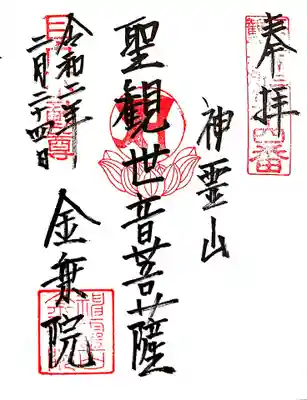 奉拝
神霊山
聖観世音菩薩
金乗院
令和二年
二月二十四日